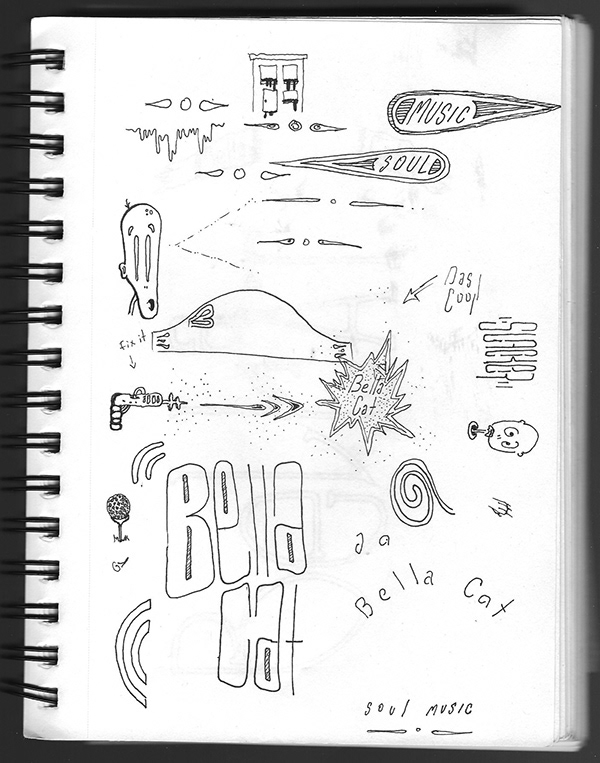 MUSIC
SOUL
Das
Cool
fix it
Bella
Cat
Bella
Cat
Ja
Bella Cat
SOUL MUSIC